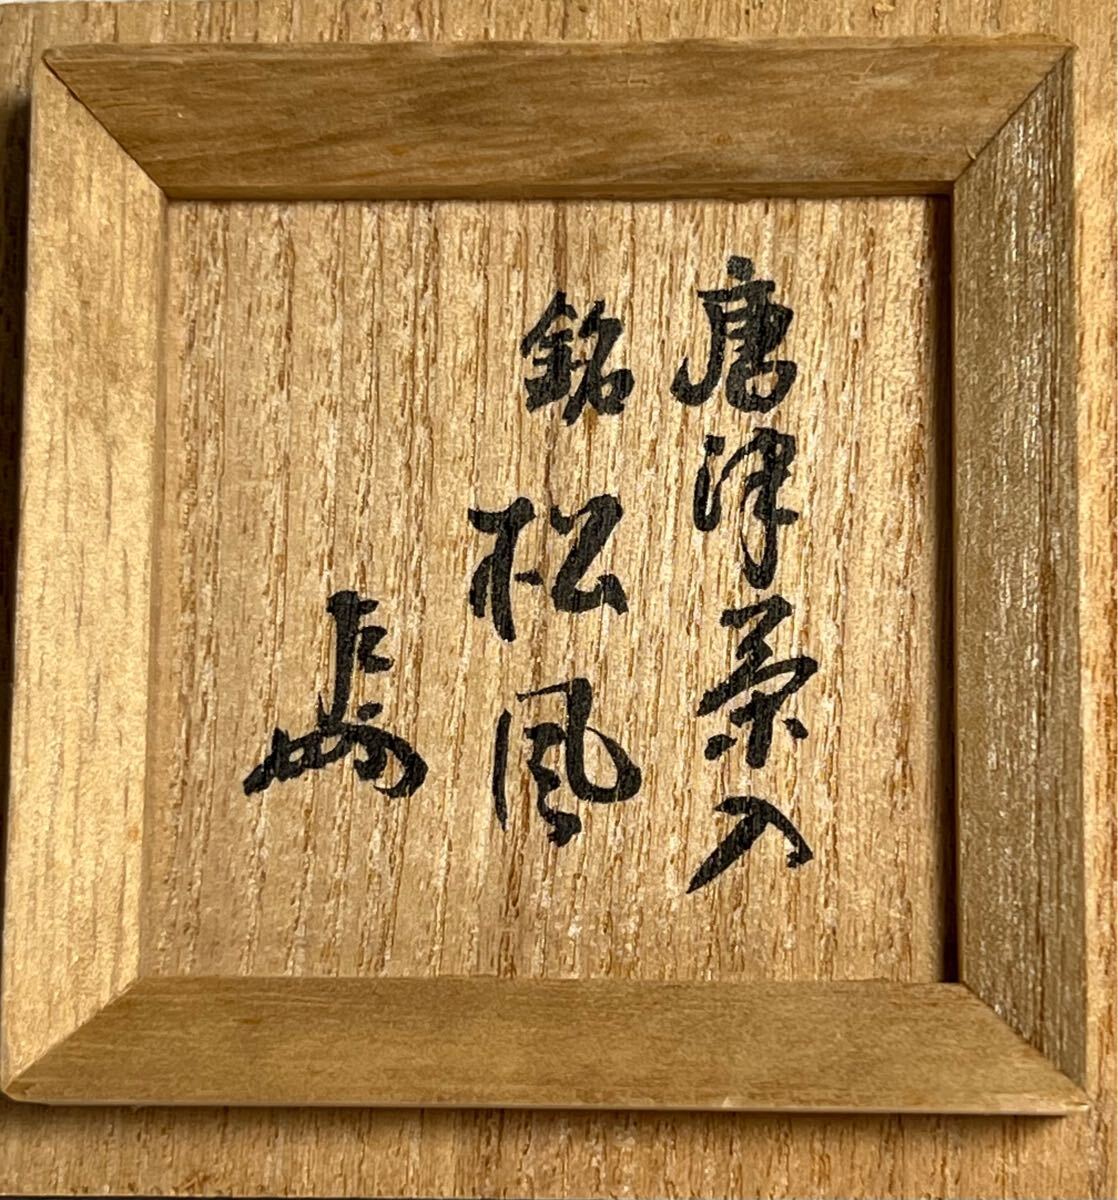 唐津茶入
銘
松風